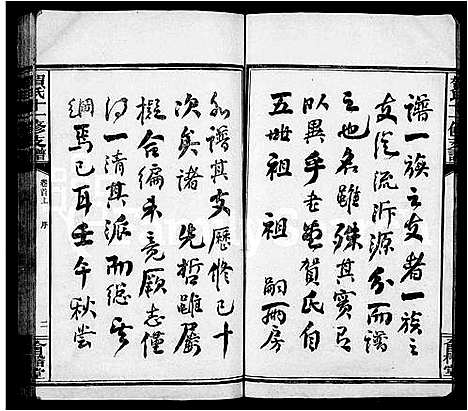 譜一族之支者一族之
支從流泝源分而譜
之也名雖殊其實有
以異乎老 賀氏自
五世祖 祖 嗣兩房
各譜其支歷修已十
次矣諸 先哲雖屬
擬合編未竟厥志僅
得一清其派而總其
綱焉已耳壬午秋嘗
賀氏十一修支譜
卷首上 序
二